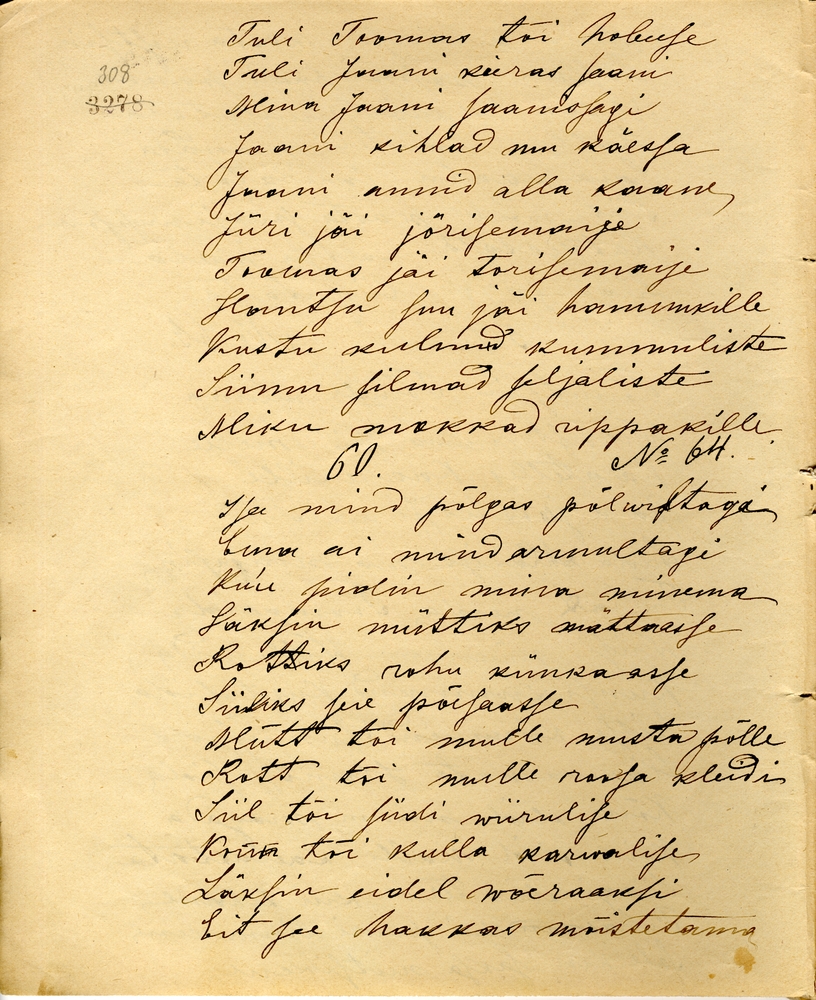 308
3278
Tuli Toomas tõi hobuse
Tuli Jaani keeras saani
Mina Jaani saamosagi
Jaani kihlad mu käessa
Jaani annid alla kaane
Jüri jäi jõrisemaije
Toomas jäi torisemaije
Hantsu suu jäi hammukille
Kustu kulmud kummuliste
Siimu silmad seljaliste
Miku mokkad rippakille
60. No 64.
Isa mind põlgas põlwistagi
Ema ei mind armultagi
Kui pidin mina minema
Läksin müttiks mättaasse
Rottiks rohu künkaasse
Siiliks seie põesaasse
Mütt tõi mulle musta põlle
Rott tõi mulle roosa kleidi
Siil tõi siidi wiirulise
Konn tõi kulla karwalise
Läksin eidel wõeraaksi
Eit see hakkas mõistetama